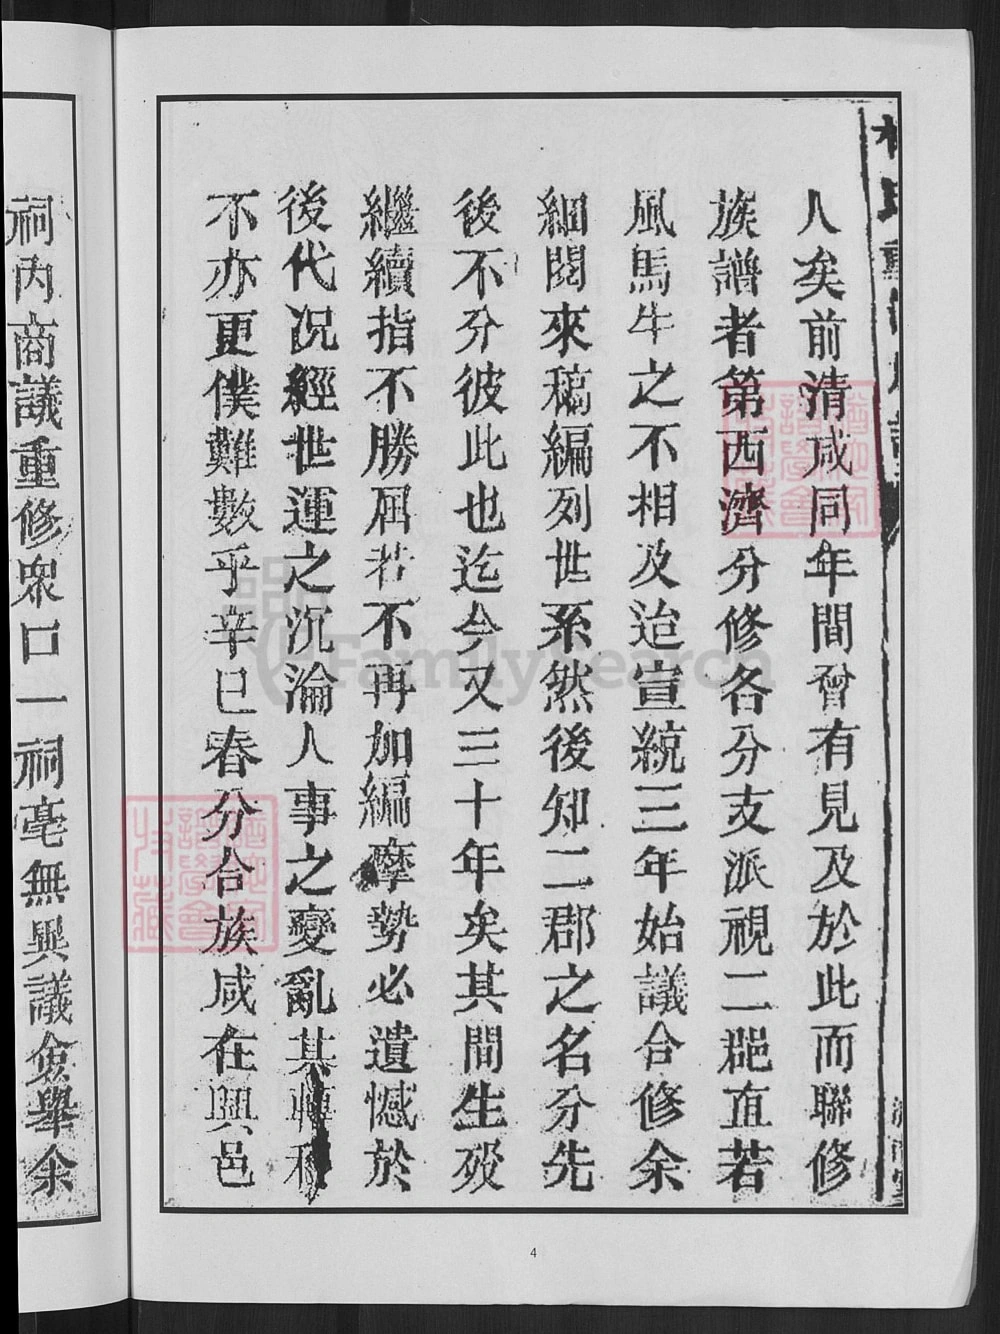 人矣前清咸同年間曾有見及於此而聯修
族譜者第西濟分修各分支派視二郡直若
風馬牛之不相及迨宣統三年始議合修余
細閱來稿編列世系然後知二郡之名分先
後不分彼此也迄今又三十年矣其間生歿
繼續指不勝屈若不再加編摩勢必遺憾於
後代况經世運之沉淪人事之變亂其轉移
不亦更僕難數乎辛巳春分合族咸在興邑
祠內商議重修眾口一祠毫無異議僉舉余
4
FamilySearch